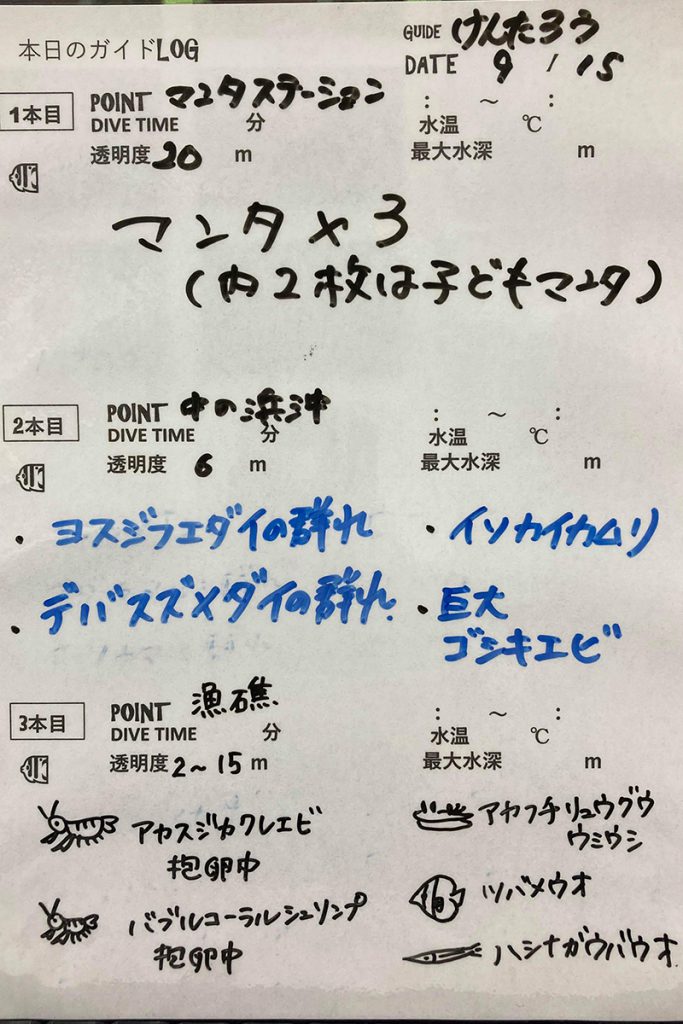 本日のガイドLOG
GUIDE げんたろう
DATE 9 / 15
1本目
POINT マンタステーション
: ～ :
DIVE TIME 分
水温 ℃
透明度 20 m
最大水深 m
マンタ×3
(内2枚は子どもマンタ)
2本目
POINT 中の浜沖
: ～ :
DIVE TIME 分
水温 ℃
透明度 6 m
最大水深 m
・ヨスジフエダイの群れ
・デバスズメダイの群れ
・イソカイカムリ
・巨大
ゴシキエビ
3本目
POINT 漁礁
: ～ :
DIVE TIME 分
水温 ℃
透明度 2～15 m
最大水深 m
アカスジカクレエビ
抱卵中
バブルコーラルシュリンプ
抱卵中
アカフチリュウグウ
ウミウシ
ツバメウオ
ハシナガウバウオ